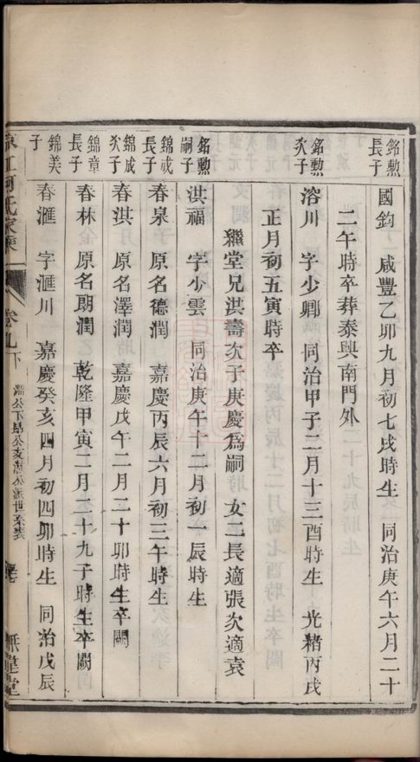 銘勲長子
國鈞 咸豐乙卯九月初七戌時生 同治庚午六月二十
二午時卒葬泰興南門外
銘勲次子
溶川 字少卿 同治甲子二月十三酉時生 光緒丙戌
正月初五寅時卒
繼堂兄洪壽次子庚慶為嗣 女二長適張次適袁
銘勲嗣子
洪福 字少雲 同治庚午十二月初一辰時生
錦成長子
春泉 原名德潤 嘉慶丙辰六月初三午時生
錦成次子
春洪 原名澤潤 嘉慶戊午二月二十卯時生卒闕
錦章長子
春林 原名朗潤 乾隆甲寅二月二十九子時生卒闕
錦美子
春滙 字滙川 嘉慶癸亥四月初四卯時生 同治戊辰
氏家乘
卷九下